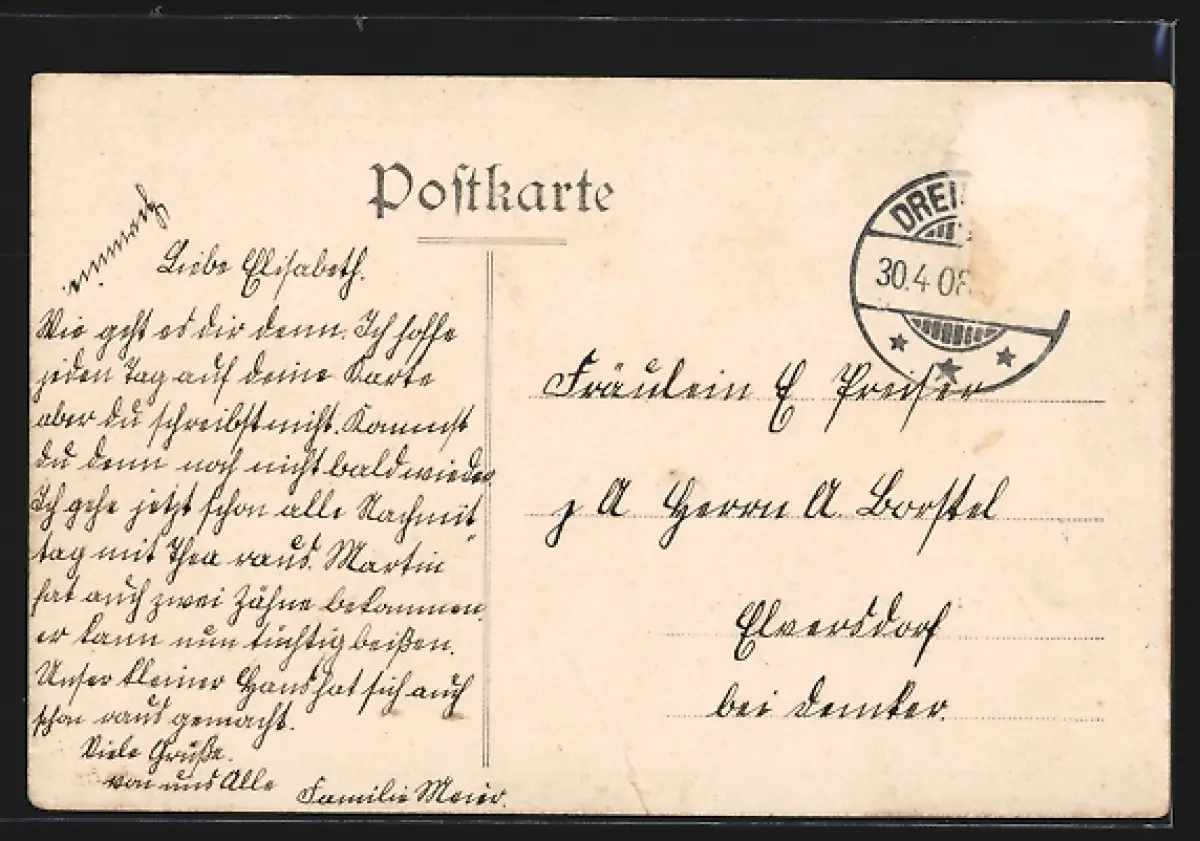 Postkarte
DREI
30.4.08
Liebe Elisabeth.
Wie geht es dir denn. Ich hoffe
jeden Tag auf deine Karte
aber du schreibst nicht. Kommst
du denn noch nicht bald wieder
Ich gehe jetzt schon alle Nachmit-
tag mit Thea raus. Martin
hat auch zwei Zähne bekommen.
er kann nun tüchtig beißen.
Unser kleiner Hans hat sich auch
schon raus gemacht.
Viele Grüße.
von uns Alle
Familie Meier.
Fräulein E Preiser
z A Herrn A Borstel
Elversdorf
bei Demker.